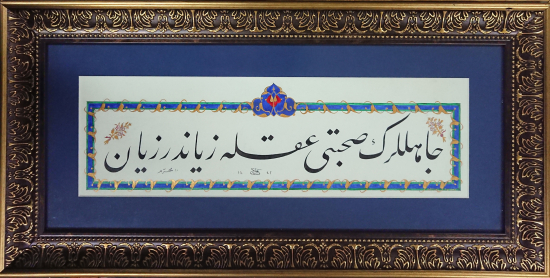 جاهللرك صحبتی عقله زیاندر زیان